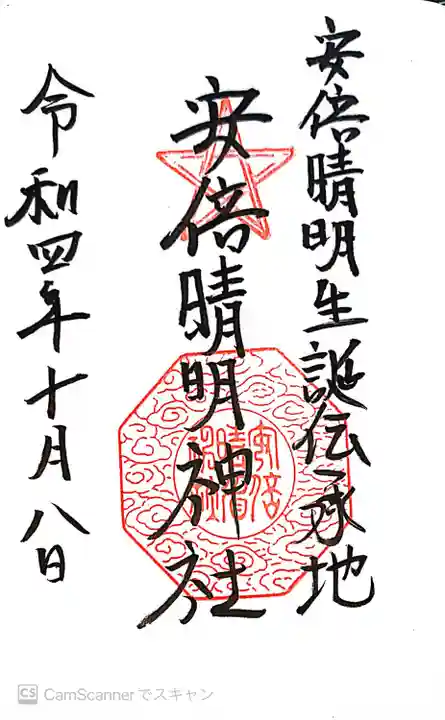 安倍晴明生誕伝承地
安倍晴明神社
令和四年十月八日
CS CamScannerでスキャン